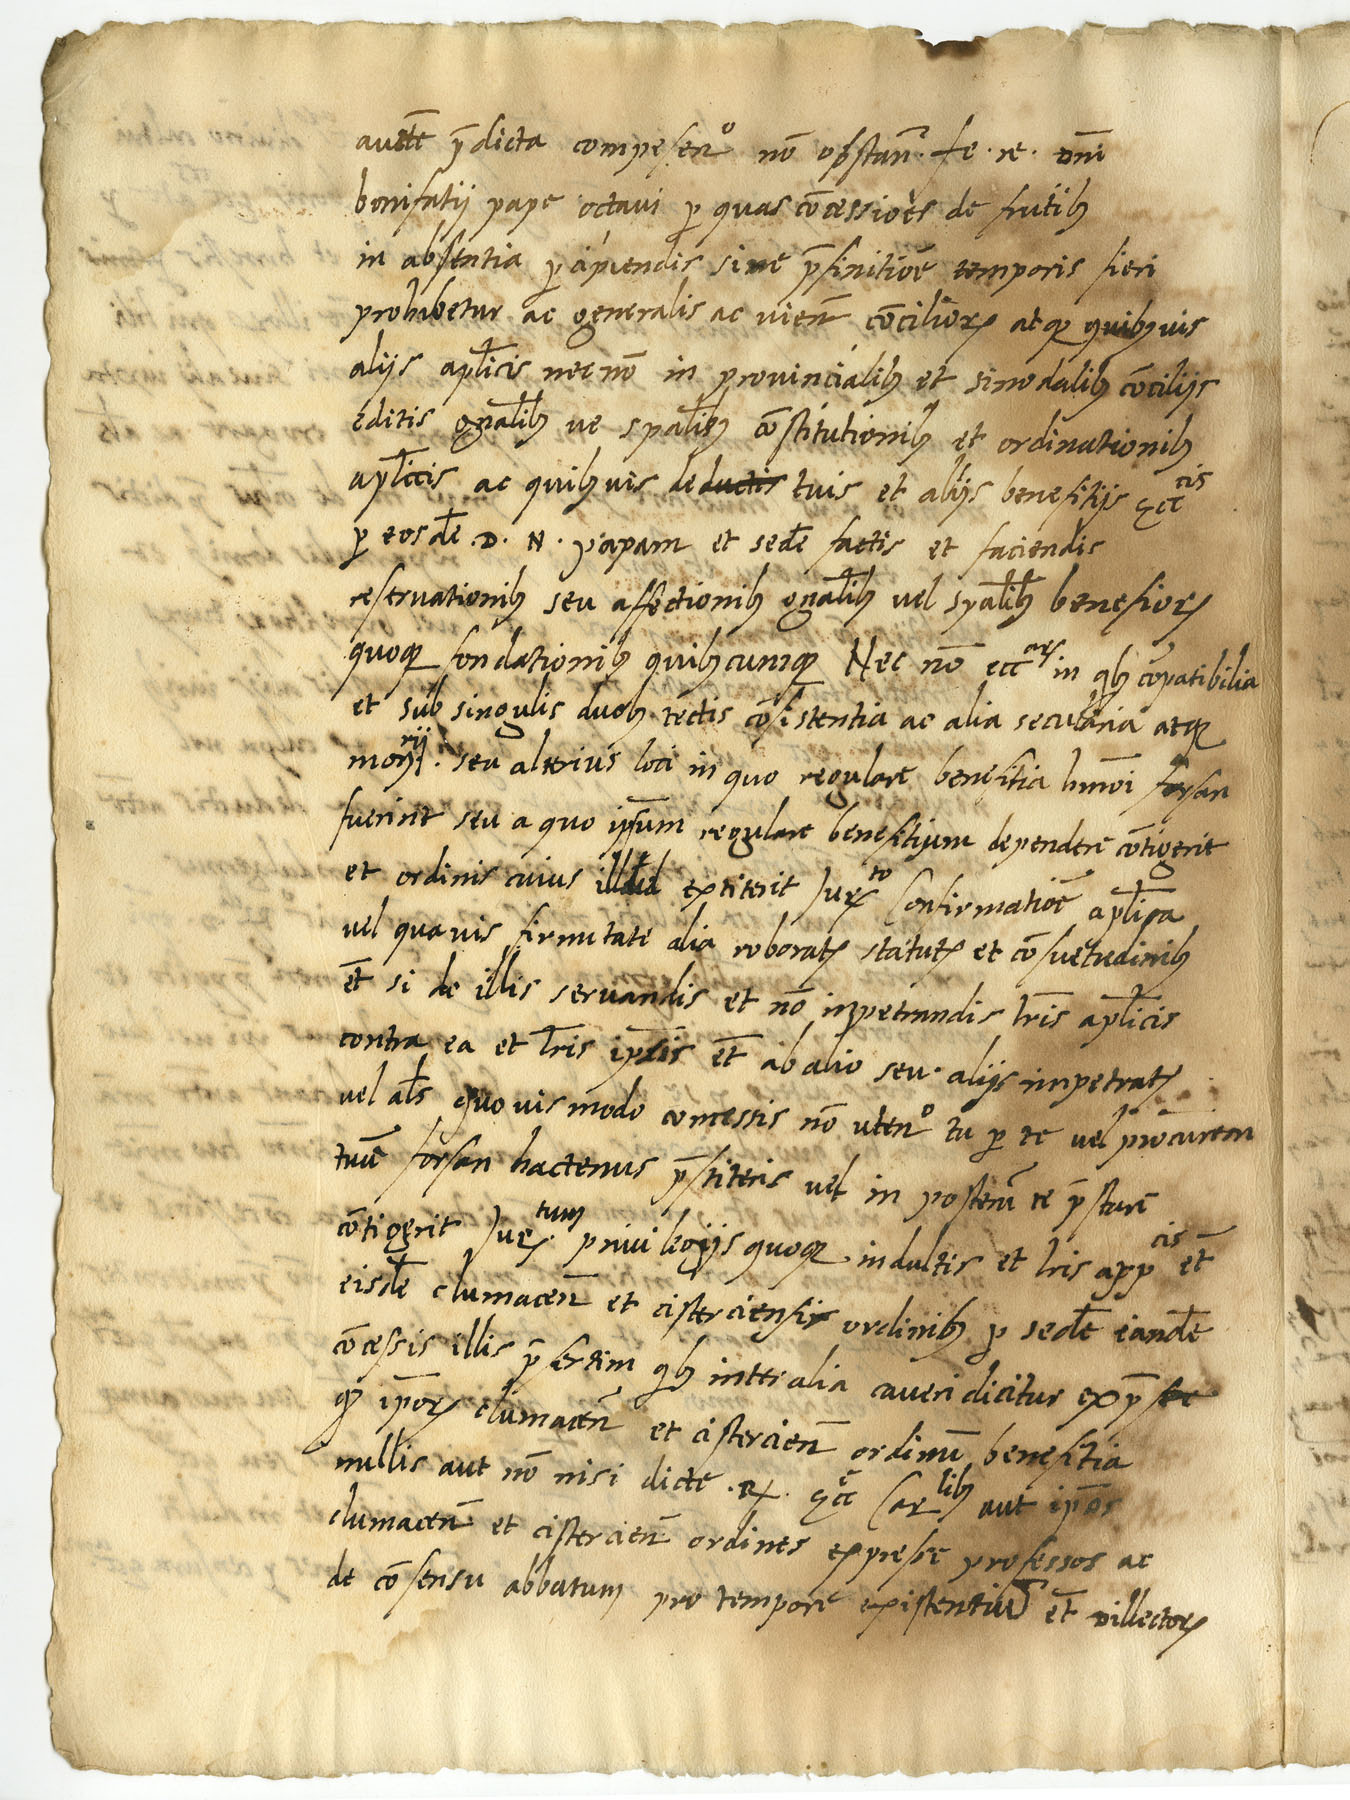 auctte p̄dicta compesen.º nō obstan̄. fe. re. Dn̄i
bonifatij pape octavi p quas cōcessiōes de frutib;
in absentia p cipiendis sine p̄finitiōe temporis fieri
prohibetur ac generalis ac vien̄ cōciliorꝝ atq; quib;vis
alijs aplīcis nec nō in provincialib; et sinodalib; cōcilijs
editis gnālib; ve spālib; cōstitutionib; et ordinationib;
aplīcis ac quib;vis de tuis et alijs benefitijs ecc cis
p eosdē. D. N. papam et sedē factis et faciendis
reservationib; seu affectionib; gnālib; vel spālib; benefiorꝝ
quoq; fondationib; quib;cumq; Nec nō ecc ar in qb; cōpatibilia
et sub singulis duob; tectis cōsistentia ac alia secularia atq;
mon rij. seu alterius loci in quo regulare benefitia hmōi forsan
fuerint seu a quo ipsum regulare benefitium dependere cōtigerit
et ordinis cuius illud extiterit Jur to Confirmatiōe aplīca
vel quavis firmitate alia roboratꝝ statutꝝ et cōsuetudinib;
et̄ si de illis servandis et nō inpetrandis lr̄is aplīcis
contra ea et lr̄is ipsis et̄ ab alio seu. alijs impetratꝝ
vel als̄ quovis modo concessis nō uten.º tu p te vel procurem
tuū forsan hactenus p̄stiteris vel in posterū te p̄stare
cōtigerit Jur. tum privilegijs quoq; indultis et lris app cis et̄
eisdē clumacen̄ et cisterciensis ordinib; p sedē eandē
cōcessis illis p̄sertim qb; inter alia caveri dicitur exp̄sse
q; ipōrꝝ clumacen̄ et cistercien̄ ordinū benefitia
nullis aut nō nisi dicte. R. ecc ē Car lib; aut ipōs
clumacen̄ et cistercien̄ ordines expresse professos ac
de cōsensu abbatum pro tempore existentiū et̄ Dillectorꝝ